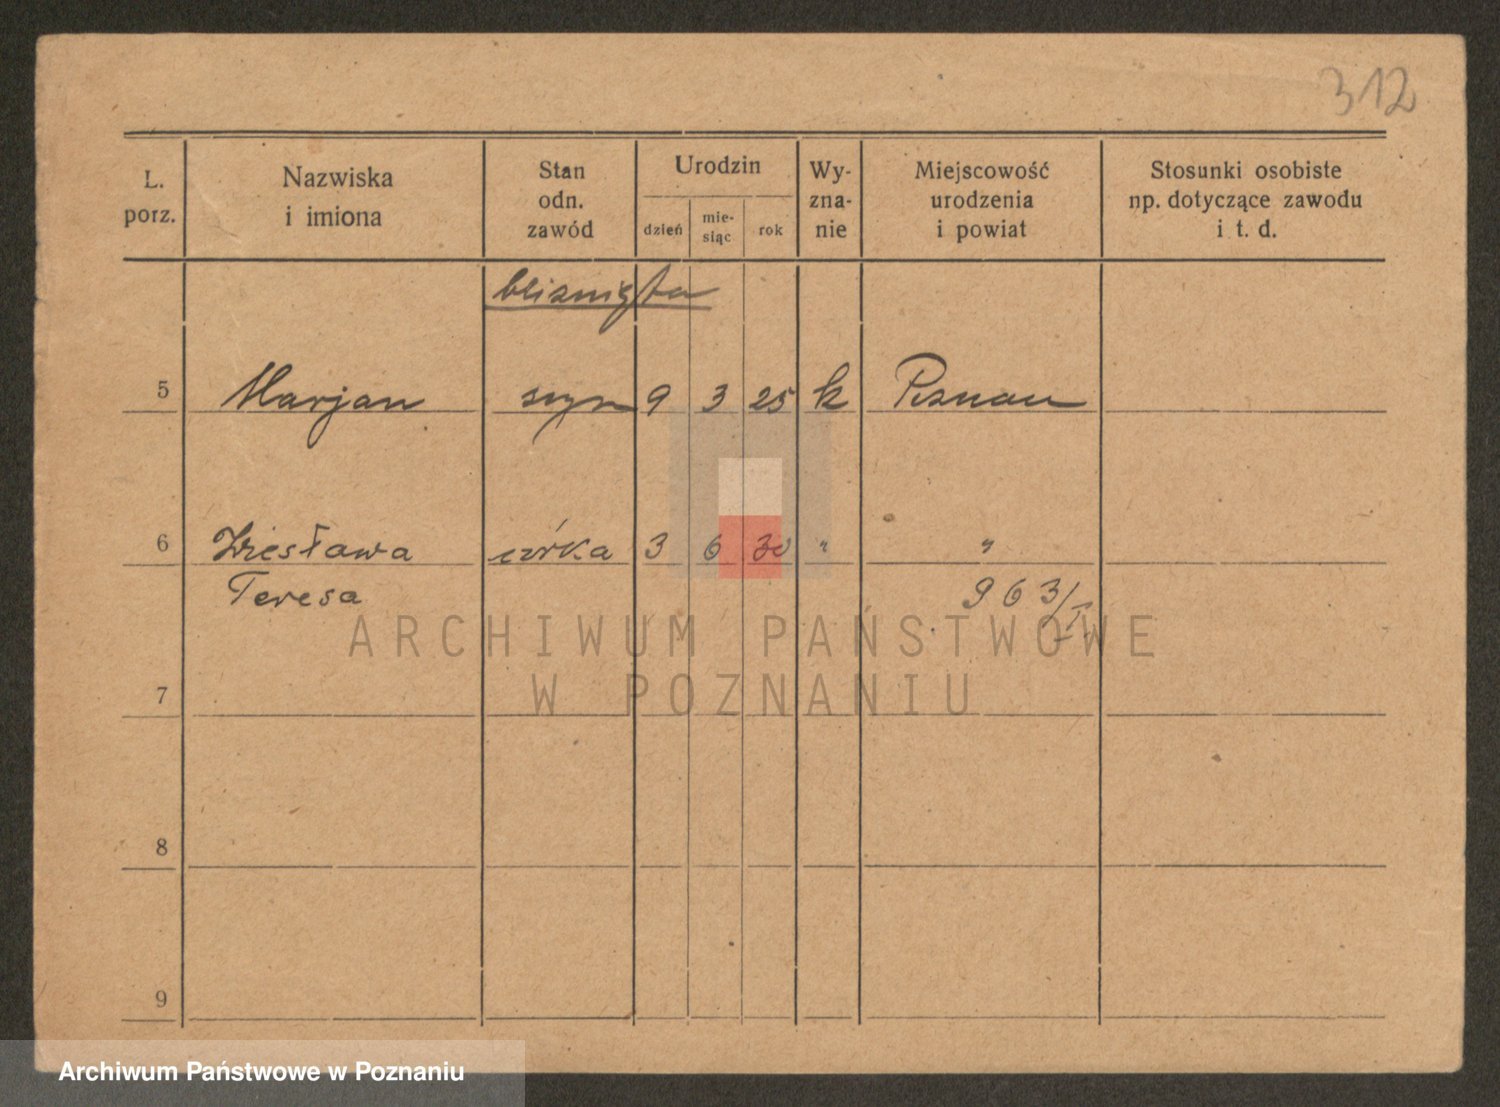 312
L. porz.
Nazwiska i imiona
Stan odn. zawód
Urodzin
dzień
mie-siąc
rok
Wy-zna-nie
Miejscowość urodzenia i powiat
Stosunki osobiste np. dotyczące zawodu i t. d.
bliznięta
5 Marjan syn 9 3 25 k Poznan
6 Wiesława córka 3 6 30 " "
Teresa 963/I
7
8
9
ARCHIWUM PAŃSTWOWE
W POZNANIU
Archiwum Państwowe w Poznaniu